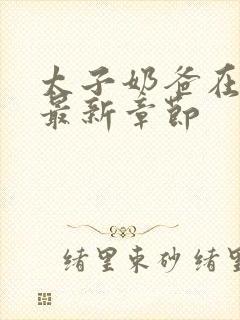 太子奶爸在
最新章节
绪里束砂绪里